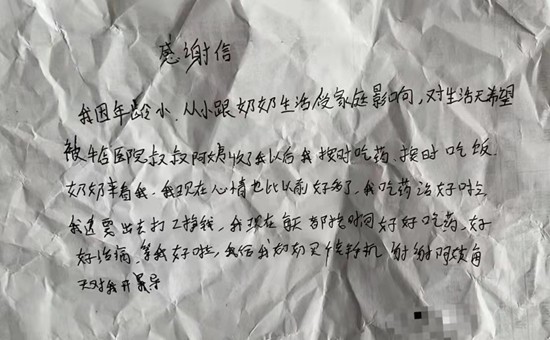 感谢信
我因年龄小、从小跟奶奶生活受家庭影响,对生活无希望
被 医院叔叔阿姨收了我以后我按时吃药、按时吃饭.
奶奶 着我.我现在心情也比以前好多了,我吃药治好啦
我还要出去打工挣钱,我现在每天都按时间好好吃药、好
好治病.等我好啦,我给我奶奶买 机 谢谢阿 
天对我开